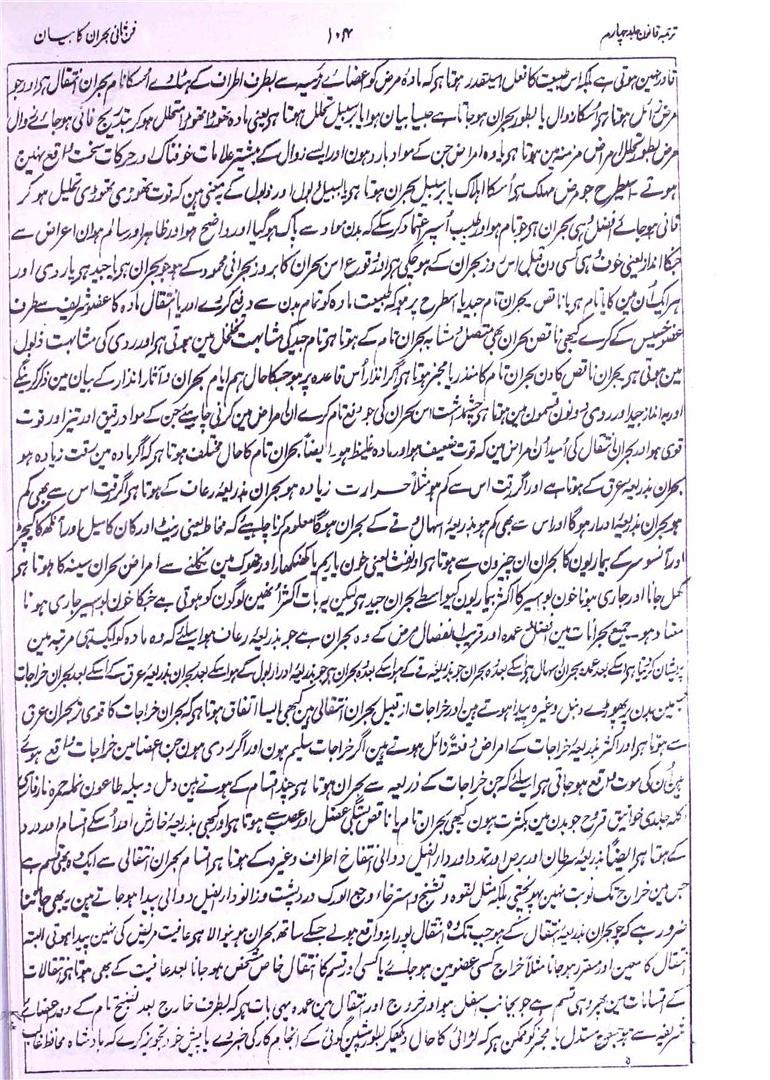 ترجمہ قانون جلد چہارم ۱۰۴ فن ثانی بحران کا بیان
قادر نہین ہوتی ہے بلکہ اس طبیعت کا فعل اسیقدر ہوتا ہے کہ مادہ مرض کو اعضائے رئیسہ سے بطرف اطراف کے ہٹا دے اُسکا نام بحران انتقال ہے اور جو
مرض زائل ہوتا ہے اُسکا زوال یا بطور بحران ہو جاتا ہے جیسا بیان ہوا یا بر سبیل تحلل ہوتا ہے یعنی مادہ تھوڑا تھوڑا متحلل ہو کر بتدریج فانی ہو جائے زوال
مرض بطور تحلل امراض مزمنہ مین ہوتا ہے یا وہ امراض جن کے مواد بارد ہون اور ایسے زوال کے پیشتر علامات خوفناک اور حرکات سخت واقع نہین
ہوتے۔ اسیطرح جو مرض مہلک ہے اُسکا اہلاک یا بر سبیل بحران ہوتا ہے یا بسبیل ذبول اور ذبول کے یہ معنی ہین کہ قوت تھوڑی تھوڑی تحلیل ہو کر
فانی ہو جائے افضل وہی بحران ہے جو تام ہو اور طبیب اُسپر اعتماد کر سکے کہ بدن مواد سے پاک ہو گیا اور واضح ہو اور ظاہر اور سالم ہو ان اعراض سے
جنکا انذار یعنی خوف ہے اسی دن قبل اس روز بحران کے ہو چکی ہے اور وقوع اس بحران کا بروز بحرانی محمود کے ہو جو بحران ہے یا جید ہے یا ردی اور
ہر ایک اُن مین کا یا تام ہے یا ناقص۔ بحران تام جید یا اسطرح پر ہو کہ طبیعت مادہ کو تمام بدن سے دفع کردے اور یا انتقال مادہ کا عضو شریف سے طرف
عضو خسیس کے کرے کبھی ناقص بحران بھی متصل مشابہ بحران تامہ کے ہوتا ہے تام جید کی مشابہت تحلل مین ہوتی ہے اور ردی کی مشابہت ذبول
مین ہوتی ہے بحران ناقص کا دن بحران تام کا منذر یا مخبر ہوتا ہے اگر انذار اُس قاعدہ پر ہو جسکا حال ہم ایام بحران و آثار انذار کے بیان مین ذکر کرینگے
اور یہ انذار جید اور ردی دونون قسمون مین ہوتا ہے چشمداشت اس بحران کی جو دفع تام کرے اُن امراض مین کرنی چاہیے جن کے مواد رقیق اور تیز اور قوت
قوی ہو اور بحران انتقال کی اُمید اُن امراض مین کہ قوت ضعیف ہو اور مادہ غلیظ ہو۔ ایضاً بحران تام کا حال مختلف ہوتا ہے کہ اگر مادہ مین رقت زیادہ ہو
بحران بذریعہ عرق کے ہوتا ہے اور اگر رقت اس سے کم ہو مثلاً حرارت زیادہ ہو بحران بذریعہ رعاف کے ہوتا ہے اگر رقت اس سے بھی کم
ہو بحران بذریعہ ادرار ہوگا اور اس سے بھی کم ہو بذریعہ اسہال وقے کے بحران ہوگا معلوم کرنا چاہیے کہ مخاط یعنی رینٹ اور کان کا میل اور آنکھ کا کیچڑ
اور آنسو سر کے بیماریون کا بحران ان چیزون سے ہوتا ہے اور نفث یعنی خون یا پیم یا کھنکھار اور تھوک مین نکلنے سے امراض بحران سینہ کا ہوتا ہے
کھل جانا اور جاری ہونا خون بواسیر کا اکثر بیماریون کیواسطے بحران جید ہے لیکن یہ بات اکثر اُنھین لوگون کو ہوتی ہے جنکا خون بواسیر جاری ہونا
معتاد ہو۔ جمیع بحرانات مین افضل عمدہ اور قریب انفصال مرض کے وہ بحران ہے جو بذریعہ رعاف ہو اسلیے کہ وہ مادہ کو ایک ہی مرتبہ مین
پریشان کر دیتا ہے اسکے بعد عمدہ بحران اسہال ہے اسکے بعد وہ بحران جو بذریعہ قے کے ہو اسکے بعد وہ بحران ہے جو بذریعہ ادرار بول کے ہو اسکے بعد بحران بذریعہ عرق کے اسکے بعد بحران خراجات
جسمین بدن پر پھوڑے دنبل وغیرہ پیدا ہوتے ہین اور خراجات از قبیل بحران انتقالی ہین کبھی ایسا اتفاق ہوتا ہے کہ بحران خراجات کا قوی تر بحران عرق
سے ہوتا ہے اور اکثر بذریعہ خراجات کے امراض دفعۃً زائل ہوتے ہین اگر خراجات سلیم ہون اور اگر ردی ہون جن اعضا مین خراجات واقع ہوے
ہین اُن کی موت واقع ہو جاتی ہے اسلیے کہ جن خراجات کے ذریعہ سے بحران ہوتا ہے چند اقسام کے ہوتے ہین دمل دبیلہ طاعون نملہ حمرہ نار فارسی
آکلہ جلدی خوانیق قروح جو بدن مین بکثرت ہون کبھی بحران تام یا ناقص عضل اور عصب سے ہوتا ہے اور کبھی بذریعہ خارش اور اُسکے اقسام اور درد
کے ہوتا ہے ایضاً بذریعہ سرطان اور برص اور تمدد اور داءالفیل دوالی انتفاخ اطراف وغیرہ کے ہوتا ہے اقسام بحران انتقالی سے ایک وہ بھی قسم ہے
جس مین خراج تک نوبت نہین پہونچتی بلکہ مثل لقوہ و تشنج و استرخاء و وجع الورک و درد پشت و زانو داءالفیل و دوالی پیدا ہو جاتے ہین یہ بھی جاننا
ضرور ہے کہ جو بحران بذریعہ انتقال کے ہو جب تک وہ انتقال پورا نہ واقع ہولے جسکے ساتھ بحران ہونیوالا ہے عافیت مریض کی نہین پیدا ہوتی البتہ
انتقال کا معین اور مقرر ہو جانا مثلاً خراج کسی عضو مین ہو جائے یا کسی اور قسم کا انتقال خاص مشخص ہو جانا بعد عافیت کے بھی ہوتا ہے انتقالات
کے اقسامات مین بہتر وہی قسم ہے جو بجانب اسفل ہو اور خروج اور انتقال مین عمدہ وہی بات ہے کہ بطرف خارج بعد نضج تام کے دور اعضائے
شریفہ سے ہو جسطرح مستدل یا مخبر کو ممکن ہے کہ لڑائی کا حال دیکھکر بطور پیشین گوئی کے انجام کار کی خبر دے یا پیش خود تجویز کرے کہ بادشاہ محافظ غالب